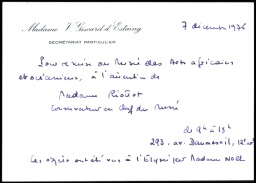 Madame V. Giscard d'Estaing
SECRÉTARIAT PARTICULIER
7 décembre 1976
Pour remise au Musée des Arts africains
et océaniens, à l'attention de
Madame
Conservateur en chef du Musée
de 9h à 13h
293, av. Daumesnil, 12e
Ces objets ont été vus à l'Elysée par Madame NOEL